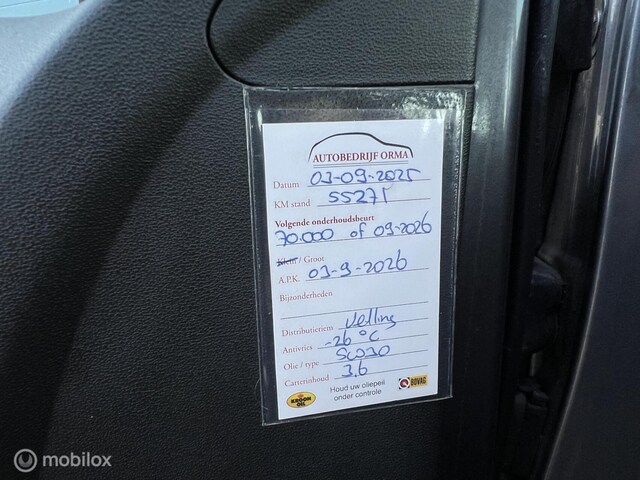 AUTOBEDRIJF ORMA
Datum 03-09-2025
KM stand 55271
Volgende onderhoudsbeurt
70.000 of 09-2026
Klein / Groot
A.P.K. 03-9-2026
Bijzonderheden
Distributieriem Ketting
Antivries -26 °C
Olie / type 5W30
Carterinhoud 3.6
Houd uw oliepeil
onder controle
KROON
OIL
BOVAG
mobilox